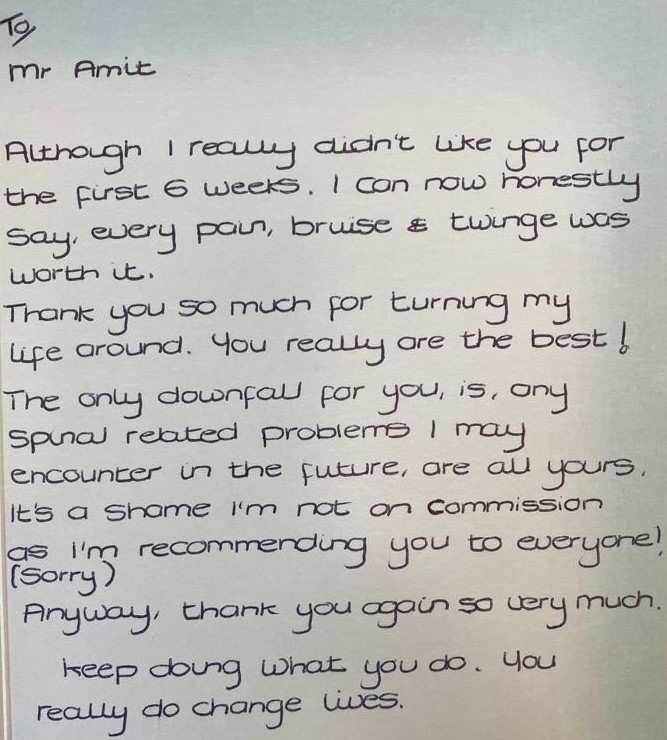 To,
Mr Amit
Although I really didn't like you for
the first 6 weeks. I can now honestly
say, every pain, bruise & twinge was
worth it.
Thank you so much for turning my
life around. You really are the best!
The only downfall for you, is, any
spinal related problems I may
encounter in the future, are all yours.
It's a shame I'm not on commission
as I'm recommending you to everyone!
(Sorry)
Anyway, thank you again so very much.
keep doing what you do. You
really do change lives.